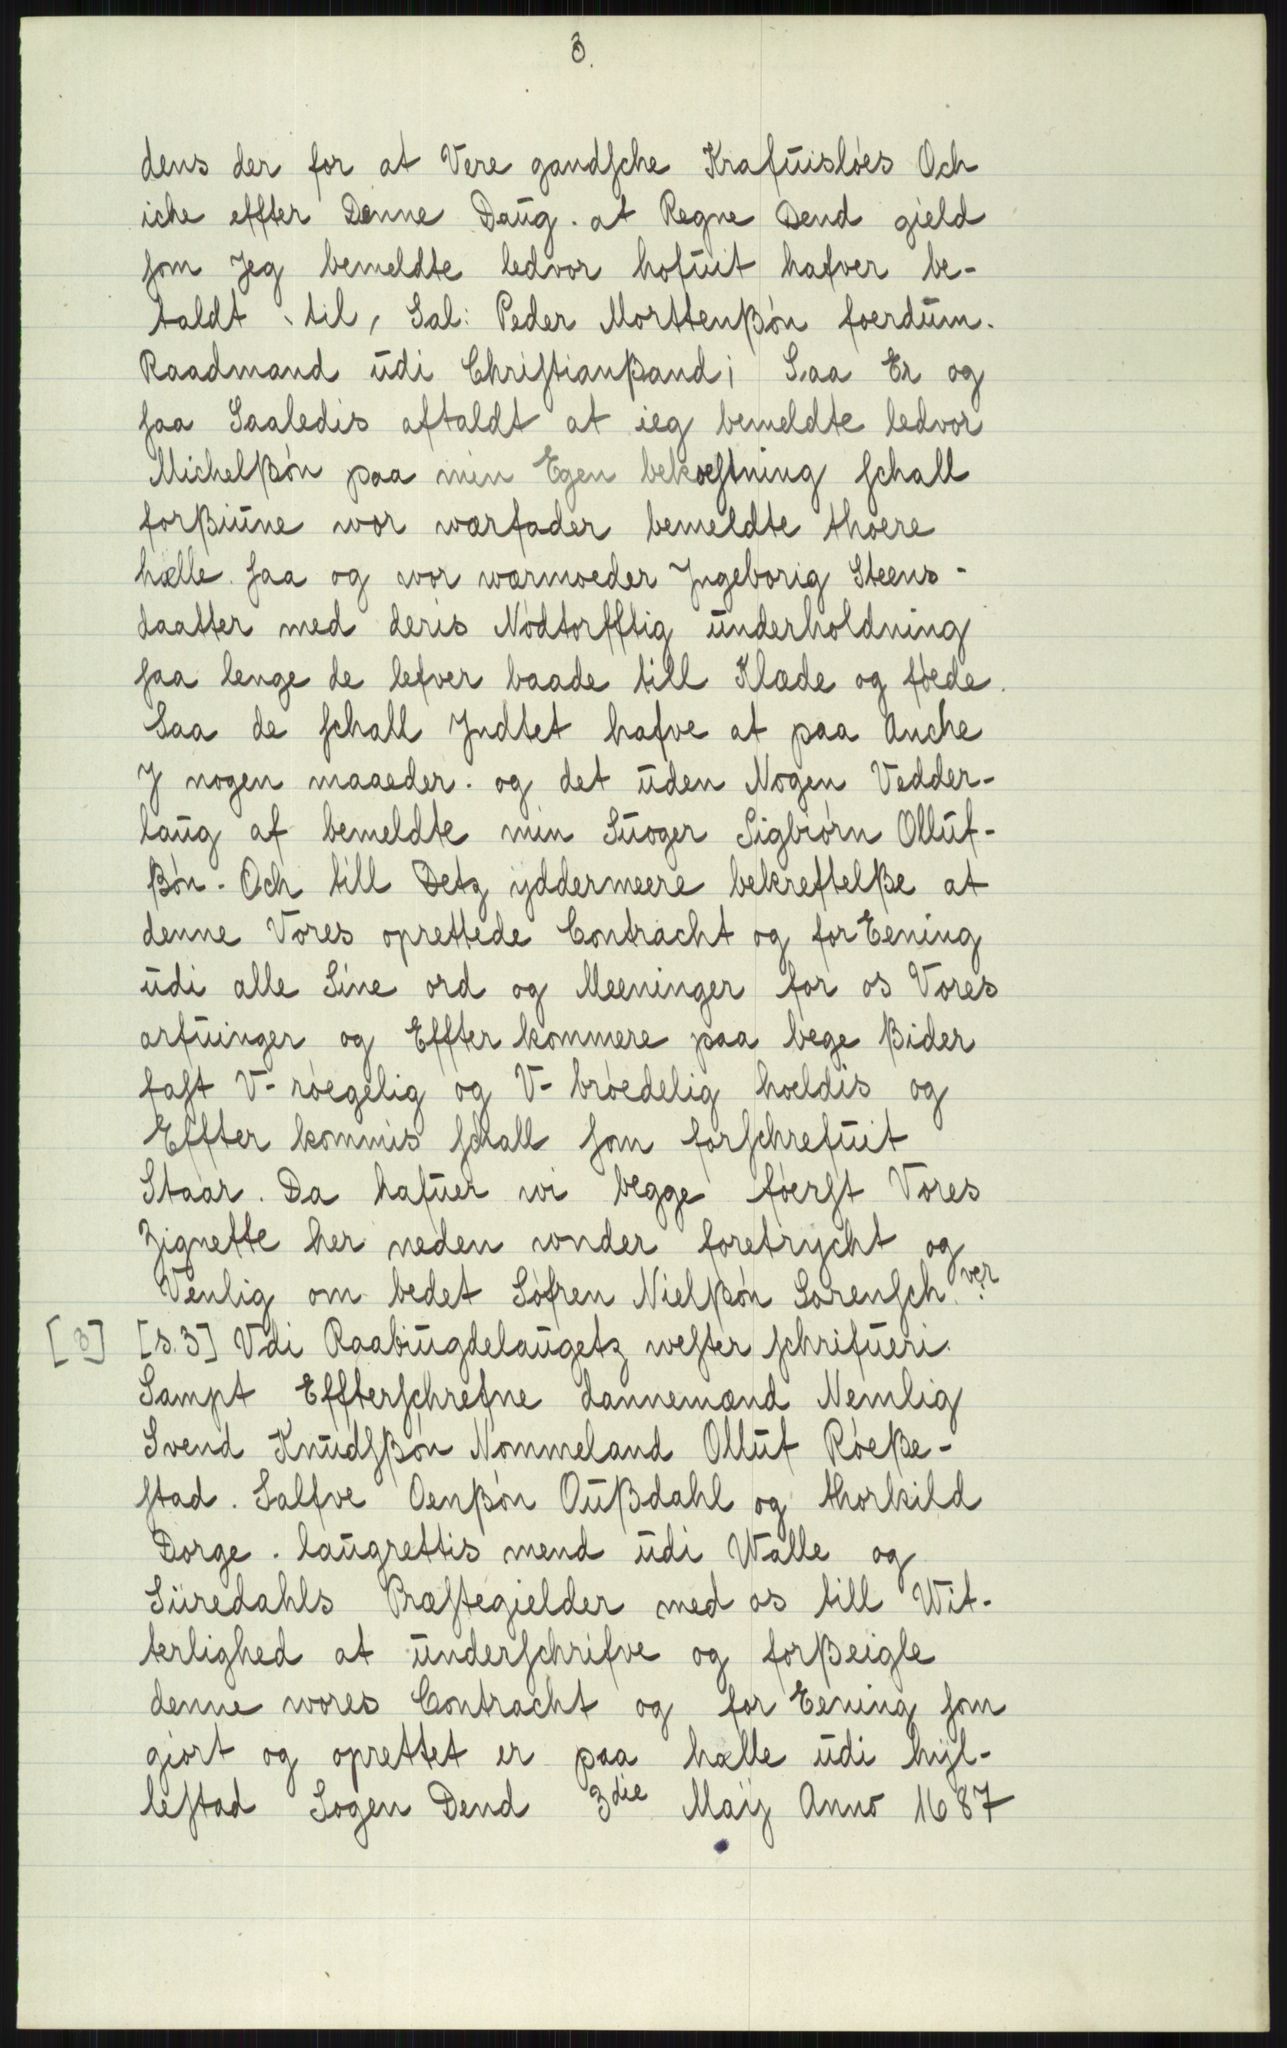 3.
dens der for at Vere gandsche Krafuisløes Och
iche effter Denne Daug. at Regne Dend gield
som Jeg bemeldte ledvor hofuit hafver be-
taldt til, Sal: Peder Morttenßøn foerdum.
Raadmand udi Christianßand; Saa Er og
saa Saaledis aftaldt at ieg bemeldte ledvor
Michelßøn paa min Egen bekoestning schall
forßiune wor wærfader bemeldte thoere
hælle. saa og wor wærmoeder Jngeborig Steens-
daatter med deris Nødtorfftig ünderholdning
saa lenge de lefver baade till Klæde og føede.
Saa de schall Jndtet hafve at paa Anche
J nogen maaeder. og det uden Nogen Vedder-
laug af bemeldte min Suoger Sigbiørn Olluf-
ßøn. Och till Detz yddermeere bekreftelße at
denne Vores oprettede Contracht og for Eening
üdi alle Sine ord og Meeninger for os Vores
arfuinger og Effter kommere paa bege ßider
fast V-røegelig og V-brøedelig hoeldis og
Effter kommis schall som forschrefuit
Staar. Da hafuer wi begge føerst Vores
Zignette her neden wnder foretrycht og
Venlig om bedet Søfren Nielßøn Sorensch. ver?
[3] [s.3] Vdi Raabiugdelaugetz wester schrifueri.
Sampt Effterschrefne dannemænd Nemlig
Svend Knudsßøn Nommeland Olluf Røeße-
stad. Salfve Oenßøn Oußdahl og thorkild
Dorge. laugrettis mend üdi Walle og
Siiredahls Præstegielder med os till Wit-
terlighed at ünderschrifve og forßeigle
denne wores Contracht og for Eening som
giort og oprettet er paa hælle üdi hyl-
lestad Sogen Dend 3die Maij Anno 1687